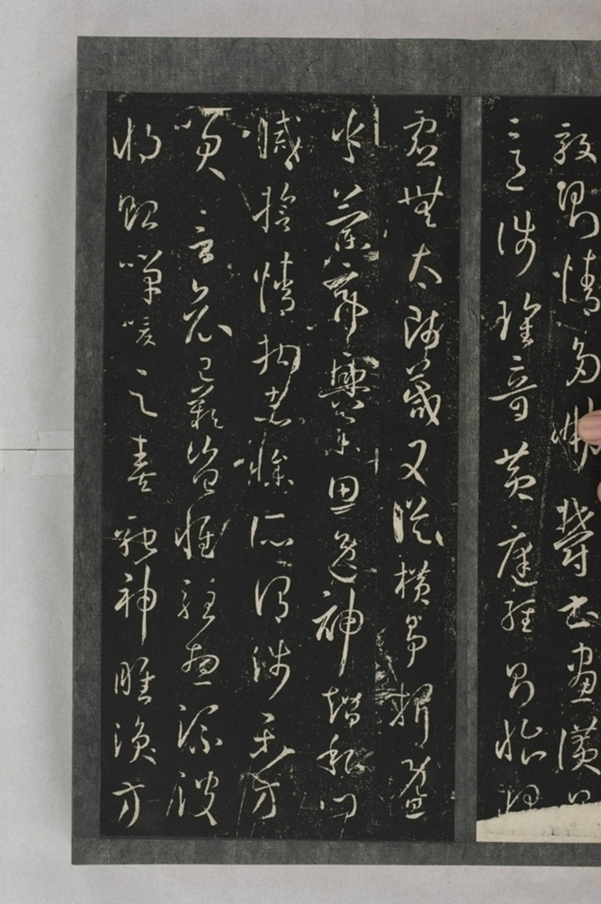 毅則情多怫鬱書畫讚
意涉瓌奇黃庭經則怡
虛無太師箴又從橫爭折暨
乎蘭亭興集思逸神超私門
誡誓情拘志慘所謂涉樂方
笑言哀已歎豈惟駐想流波
將貽嘽喛之奏馳神睢渙方